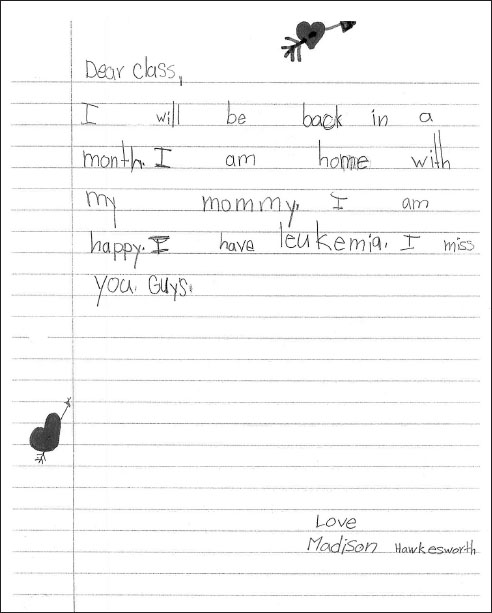 Dear class,
I will be back in a
month. I am home with
my mommy. I am
happy. I have leukemia. I miss
you. Guys.
Love
Madison Hawkesworth